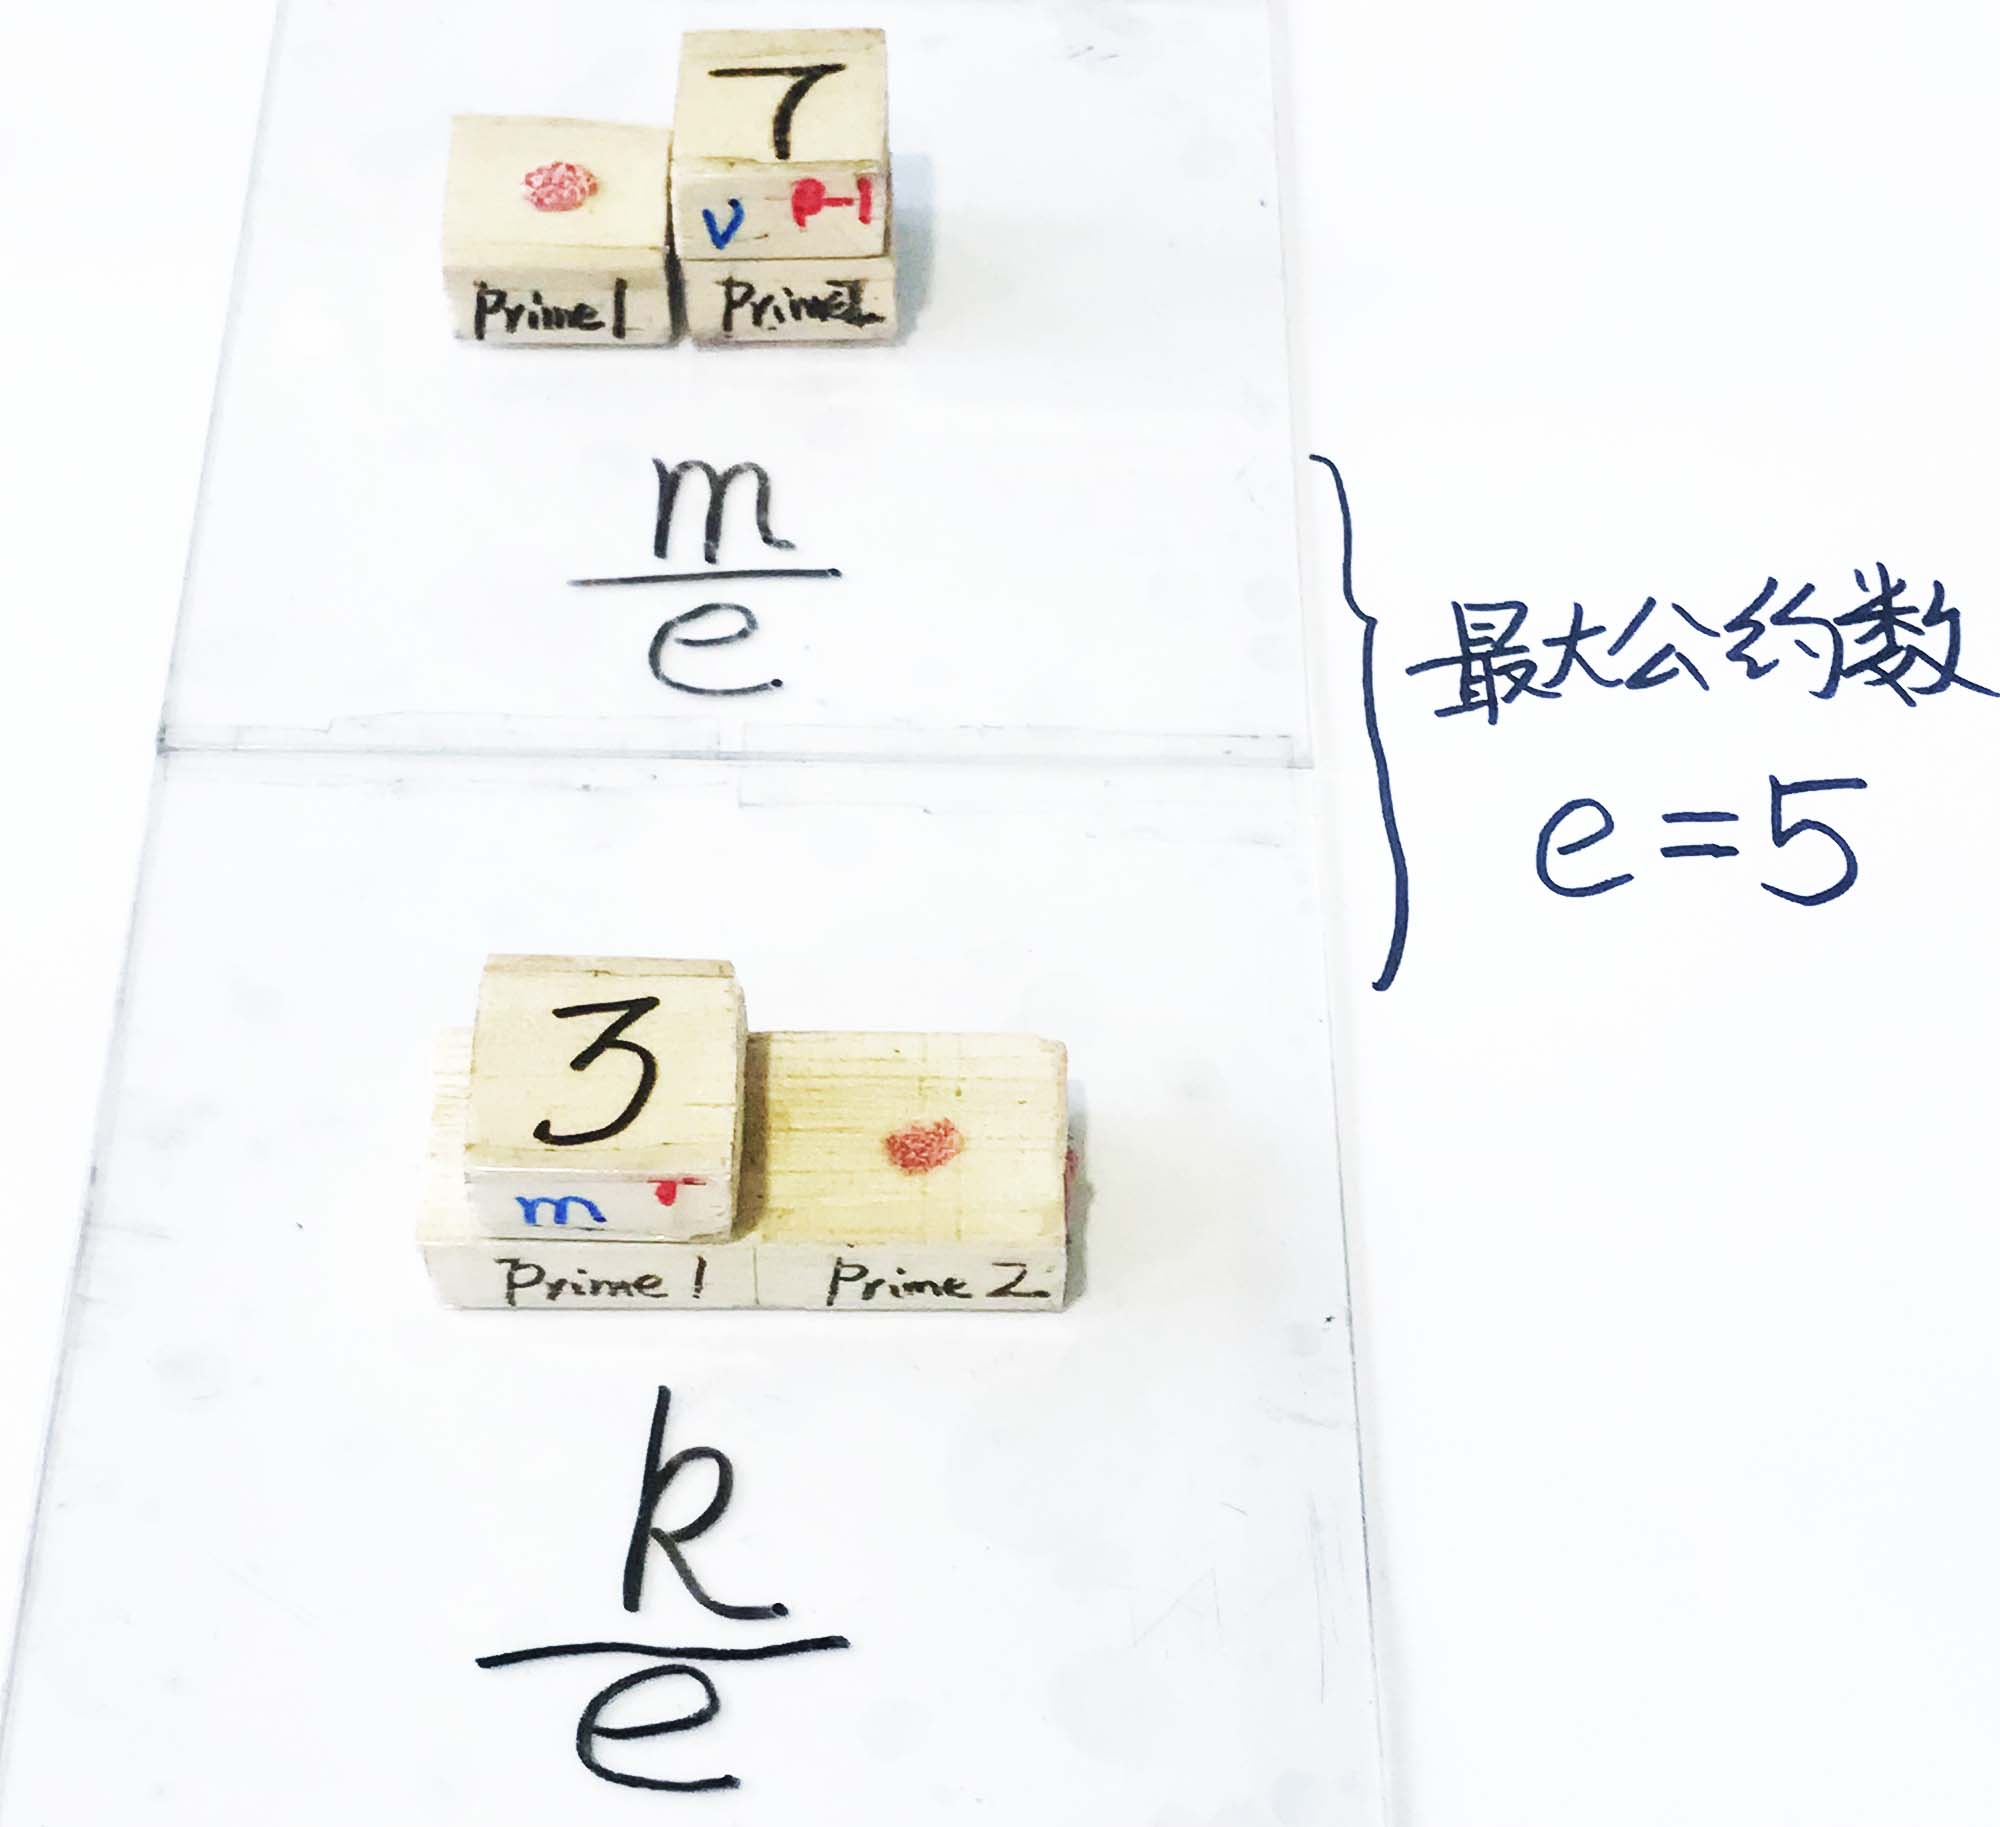 7
v
Prime1 Prime2
m
e
最大公约数
e=5
3
m
Prime1 Prime2
k
e